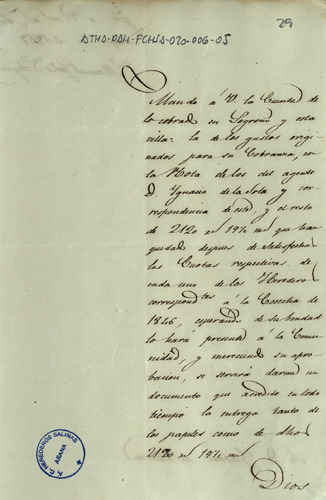 29
ATHA-DAH-FCHSA-020-006-05
Mando á V. la Cuenta de
lo cobrado en Logroño y esta
villa: la de los gastos origi-
nados para su Cobranza, con
la Nota de los del agente
D. Ignacio de la Sota y cor-
respondencia de este, y el resto
de 2120 rs 19½ ms que han
quedado despues de satisfechas
las Cuotas respectivas, de
cada uno de los Heredero
correspondtes á la Cosecha de
1846, esperando de su bondad
lo hará presente á la Comu-
nidad, y mereciendo su apro-
bacion, se servirá darme un
documento que acredite en todo
tiempo la entrega tanto de
los papeles como de dhos
2120 rs 19½ ms
Dios
A. C. HEREDEROS SALINAS
AÑANA